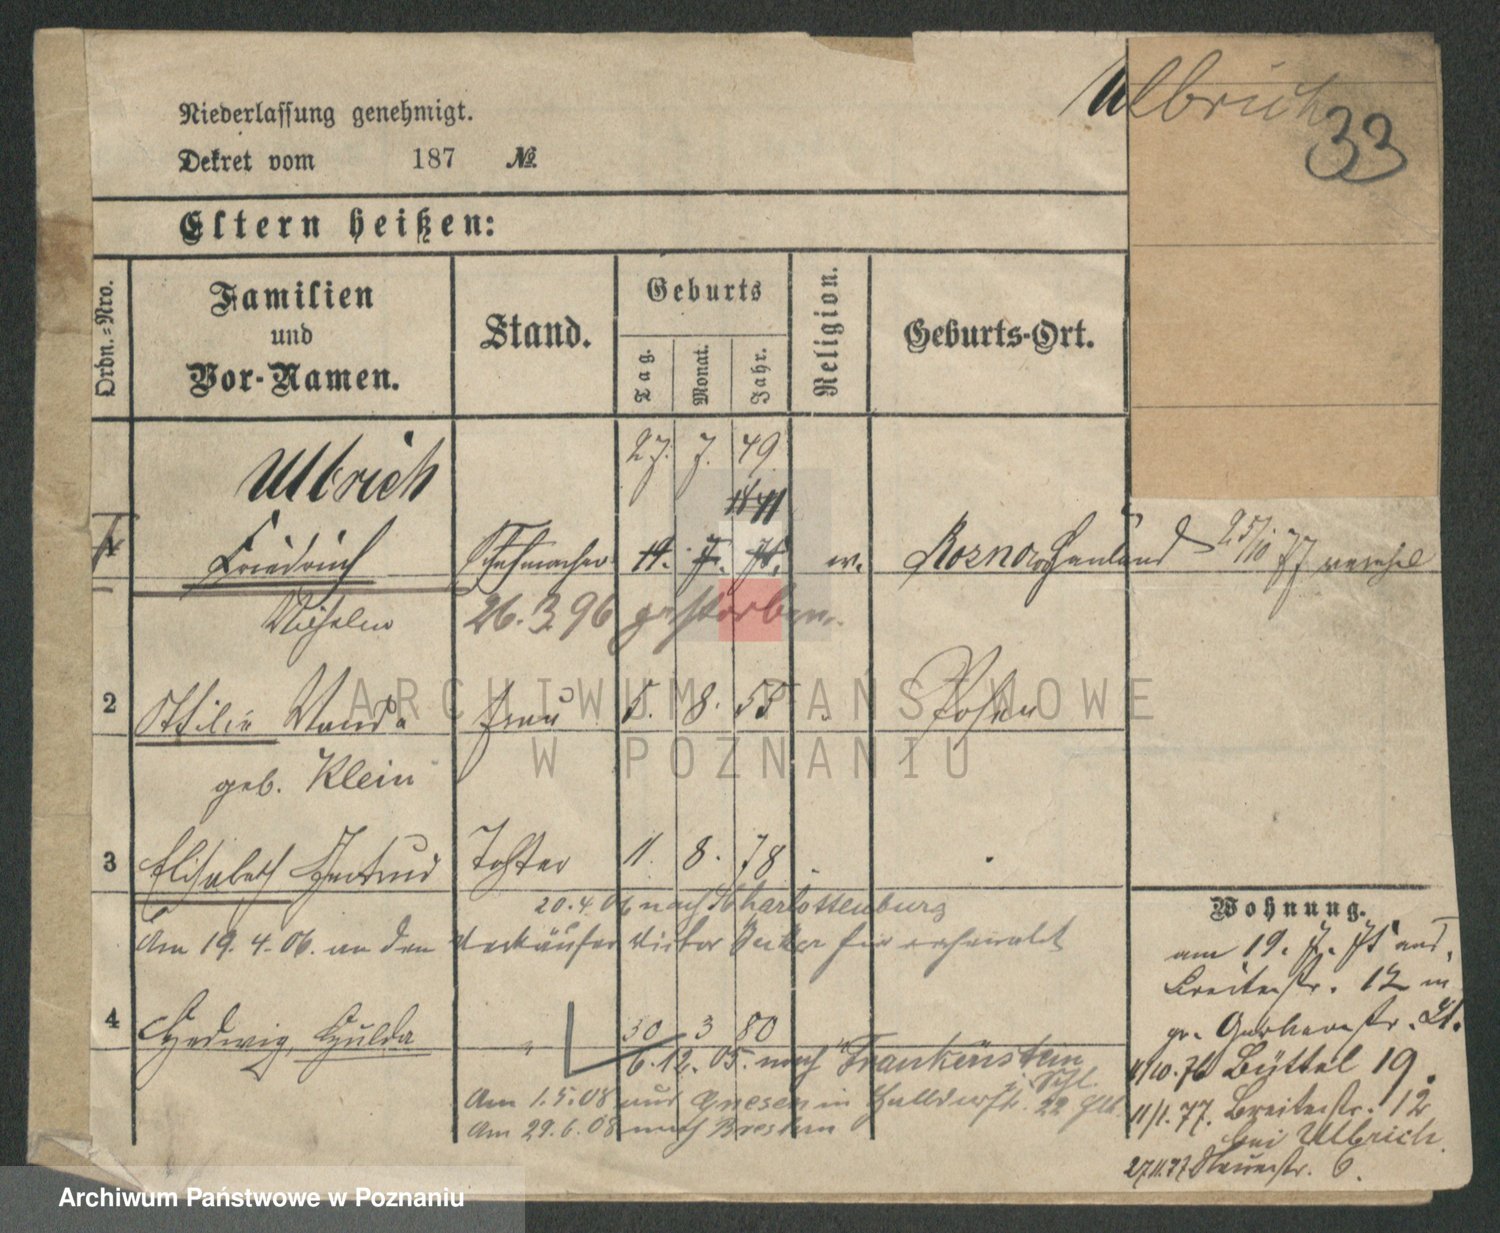 Ulbrich
33
Niederlassung genehmigt.
Dekret vom 187 №
Eltern heißen:
Ordn.=Nro.
Familien
und
Vor-Namen.
Stand.
Geburts
Tag.
Monat.
Jahr.
Religion.
Geburts-Ort.
27. 7. 49.
Ulbrich
1 Friedrich Schuhmacher 19. 7. ev. 25/10 77
Wilhelm 26.3.96 gestorben.
2 Ottilie Wanda Frau 5. 8. 55 Posen
geb. Klein
3 Elisabeth Gertrud Tochter 11. 8. 78
20.4.06 nach Charlottenburg
Am 19.4.06. an den Verkäufer Victor
4 Hedwig, Hulda " 30 3 80
6.12.05. nach Frankenstein
i. Schl.
Am 1.5.08 aus Gnesen in 22
Am 29.6.08 nach Breslau
Wohnung.
am 19. 7. 75 aus
Breitestr. 12 in
gr. Gerberstr.
11/10.76 Büttel 19.
11/1.77. Breitestr. 12
bei Ulbrich.
27.11.77 6.
ARCHIWUM PAŃSTWOWE
W POZNANIU
Archiwum Państwowe w Poznaniu